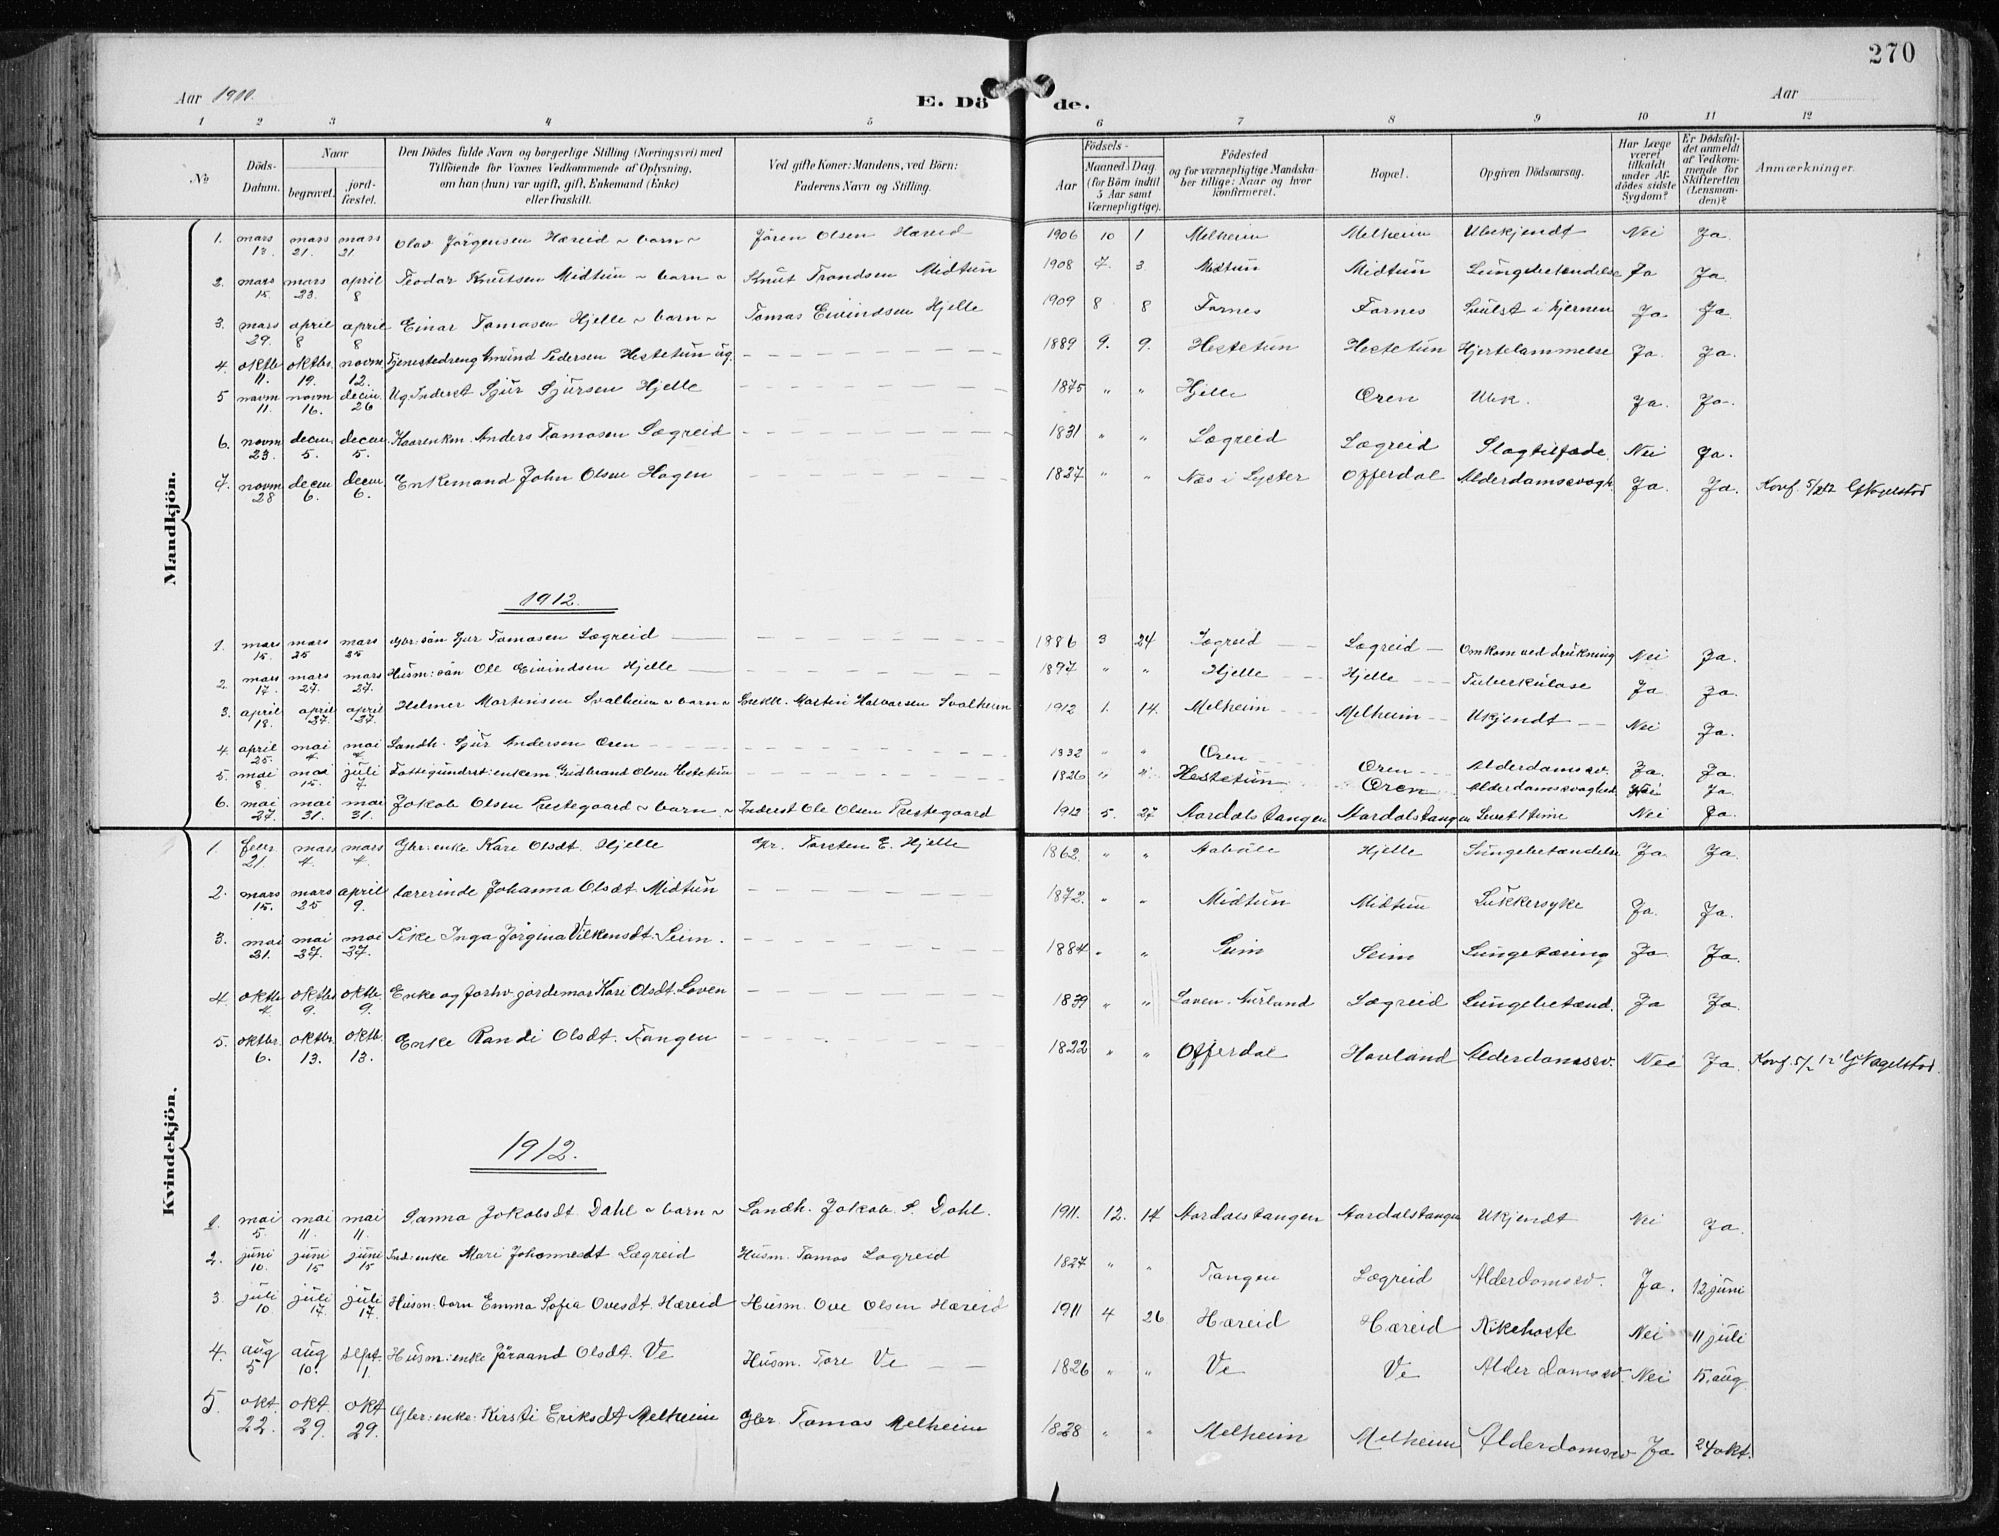 270
Aar 1911.
E. Dö de.
Aar
1 2 3 4 5 6 7 8 9 10 11 12
No
Döds-Datum.
Naar
begravet.
jord-fæstet.
Den Dödes fulde Navn og borgerlige Stilling (Næringsvei) med
Tilföiende for Voxnes Vedkommende af Oplysning,
om han (hun) var ugift, gift, Enkemand (Enke)
eller fraskilt.
Ved gifte Koner: Mandens, ved Börn:
Faderens Navn og Stilling.
Födsels-
Aar
Maaned Dag
(for Börn indtil
5 Aar samt
Værnepligtige).
Födested
og for værnepligtige Mandska-
ber tillige: Naar og hvor
konfirmeret.
Bopæl.
Opgiven Dödsaarsag.
Har Læge
været
tilkaldt
under Af-
dödes sidste
Sygdom?
Er Dödsfal-
det anmeldt
af Vedkom-
mende for
Skifteretten
(Lensman-
den)?
Anmærkninger.
Mandkjön.
1. mars 13. mars 21. mars 21 Olav Jörgensen Hæreid ~ barn ~ Jören Olsen Hæreid 1906 10 1 Melheim Melheim Ubekjendt Nei Ja
2. mars 15 mars 23. april 8 Teodor Knutsen Midtun ~ barn ~ Knut Trondsen Midtun 1908 7. 3 Midtun Midtun Lungebetændelse Ja Ja.
3. mars 29. april 8 april 8 Einar Tomasen Hjelle ~ barn ~ Tomas Eivindsen Hjelle 1909 8 8 Farnes Farnes Svulst i hjernen Ja Ja.
4. oktb. 11. oktbr. 19. novm. 12. Tjenestedreng Amund Pedersen Hestetun ug. 1889 9. 9. Hestetun Hestetun Hjertelammelse Ja. Ja.
5 novm 11. novm 16. decm. 26 Ug. Inderst Sjur Sjursen Hjelle 1875 " " Hjelle Øren Ubk. Ja. Ja.
6. novm 23. decm. 5. decm. 5. Kaarenkm. Anders Tomasen Lægreid 1831 " " Lægreid Lægreid Slagtilfælde. Nei Ja.
7. novm 28 decm 6. decm. 6. Enkemand John Olsen Hagen 1827 " " Næs i Lyster Offerdal Alderdomssvagh. Ja. Ja. Konf. 5/2 12 G Nagelstad
1912.
1. mars 15. mars 25 mars 25 Gbr: sön Gjur Tomasen Lægreid 1886 3 24 Lægreid Lægreid Omkom ved drukning Nei Ja.
2. mars 17. mars 27. mars 27. Husm: sön Ole Eivindsen Hjelle 1897 " " Hjelle Hjelle Tuberkulose Ja Ja.
3. april 18. april 27. april 27. Helmer Martinsen Svalheim ~ barn ~ Enkk. Martin Halvorsen Svalheim 1912 1. 14. Melheim Melheim Ukjendt Nei Ja.
4. april 25. mai 4. mai 4. Landh. Sjur Andersen Øren 1832 " " Øren Øren Alderdomssv. Ja. Ja.
5. mai 8. mai 15. juli 7. Fattigunderst: enkem. Gudbrand Olsen Hestetun 1826 " " Hestetun Øren Alderdomssvaghed. Nei Ja.
6. mai 27. mai 31. mai 31. Jakob Olsen Prestegaard ~ barn ~ Inderst Ole Olsen Prestegaard 1912 5. 27 Aardalstangen Aardalstangen Levet 1 time Nei Ja.
Kvindekjön.
1 febr. 21. mars 4. mars 4. Gbr: enke Kari Olsdt. Hjelle Gbr. Torsten E. Hjelle 1862. " " Aaböle Hjelle Lungebetændelse Ja Ja.
2. mars 15. mars 25 april 9. Lærerinde Johanna Olsdt. Midtun 1872. " " Midtun Midtun Sukkersyke Ja. Ja.
3. mai 21. mai 27. mai 27. Pike Inga Jörgina Vilkensdt. Seim. 1884 " " Seim Seim Lungetæring Ja Ja.
4. oktb. 4. oktb. 9. oktb. 9. Enke og forhv. jordemor Kari Olsdt. Loven 1839 " " Loven. Aurland Lægreid Lungebetænd. Ja Ja.
5. oktbr. 6. oktbr. 13. oktb. 13. Enke Randi Olsdt. Tangen 1822 " " Offerdal Hovland Alderdomssv. Nei Ja. Konf. 5/2 12 G Nagelstad.
1912.
1. mai 5. mai 11. mai 11. Sanna Jokobsdt. Dahl ~ barn ~ Landh. Jakob S. Dahl. 1911. 12. 14 Aardalstangen Aardalstangen Ukjendt Nei Ja.
2. juni 10. juni 15 juni 15 Ind: enke Mari Johannesdt Lægreid Husm. Tomas Lægreid 1827 " " Tangen Lægreid Alderdomssv. Ja. 12 juni
3. juli 10. juli 17. juli 17. Husm: barn Emma Sofia Ovesdt. Hæreid Husm. Ove Olsen Hæreid 1911 4 26 Hæreid Hæreid Kikehoste Nei 11 juli
4. aug 5 aug 10. sept. 1. Husm: enke Jörand Olsdt. Ve Husm. Tore Ve 1826 " " Ve Ve Alderdomssv. Nei 15. aug
5. okt. 22. okt 29. okt 29. Gbr: enke: Kirsti Eriksdt Melheim Gbr. Tomas Melheim 1828 " " Melheim Melheim Alderdomssv Ja 24 okt.